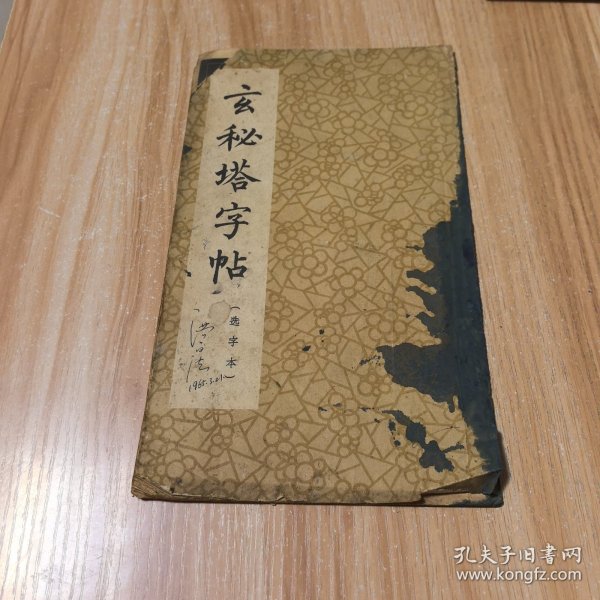 玄秘塔字帖
(选字本)
孔夫子旧书网
www.kongfz.com